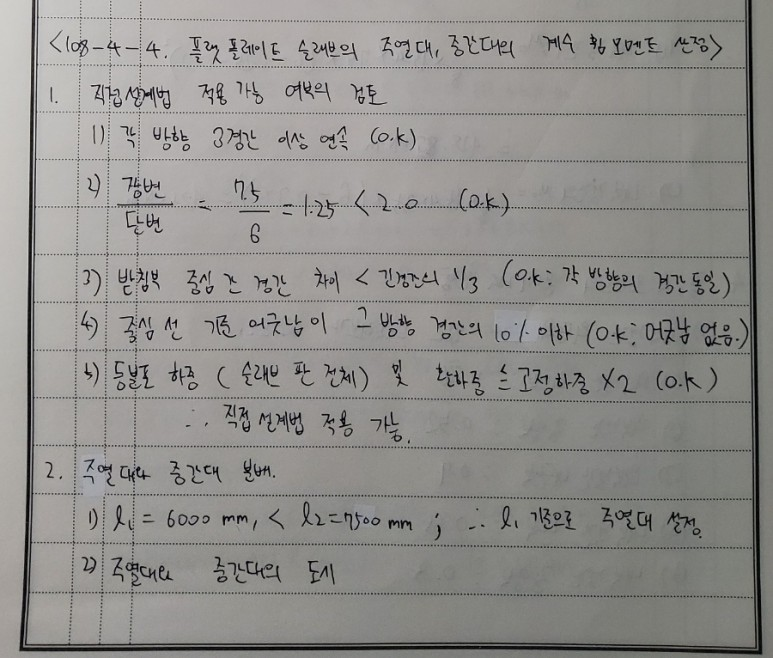 <108-4-4. 플랫 플레이트 슬래브의 주열대, 중간대의 계수 휨모멘트 산정>
1. 직접설계법 적용 가능 여부의 검토
1) 각 방향 3경간 이상 연속 (O.K)
2) 장변/단변 = 7.5/6 = 1.25 < 2.0 (O.K)
3) 받침부 중심 간 경간 차이 < 긴경간의 1/3 (O.K: 각 방향의 경간 동일)
4) 중심 선 기준 어긋남이 그 방향 경간의 10% 이하 (O.K: 어긋남 없음.)
5) 등분포 하중 (슬래브 판 전체) 및 활하중 ≤ 고정하중 ×2 (O.K)
∴ 직접설계법 적용 가능.
2. 주열대와 중간대 분배.
1) l₁ = 6000 mm, < l₂ = 7500 mm ; ∴ l₁ 기준으로 주열대 설정.
2) 주열대와 중간대의 도시